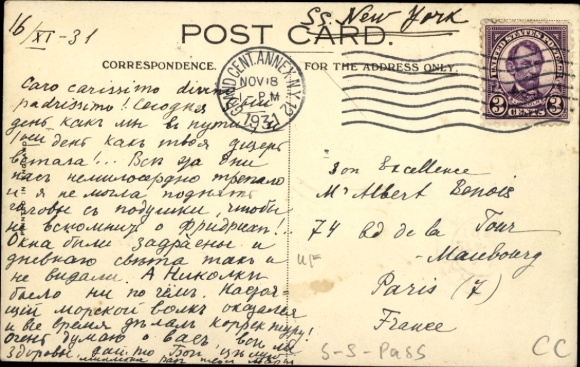 16/XI-31
SS. New York
POST CARD.
CORRESPONDENCE.
FOR THE ADDRESS ONLY.
GRAND CENT. ANNEX. N.Y. 12
NOV 18
1-PM
1931
UNITED STATES POSTAGE
3 CENTS 3
Caro carissimo divino
padrissimo! Сегодня
день какъ мы въ пути
день какъ твоя
встала!.. Все за дни
насъ немилосердно трепало
и я не могла поднять
головы съ подушки, чтобы
не вспомнить о Фридрихѣ!..
Окна были задраены и
дневного свѣта такъ и
не видали. А Николки
было ни по чемъ. Настоя-
щій морской волкъ оказался
и все время дѣлалъ корректуру!
Очень думаю о васъ, всѣ ли
здоровы, дай то Богъ
Son Excellence
Mr Albert
74 Bd de la Tour
Maubourg
Paris (7)
France
S-S-Pass
CC